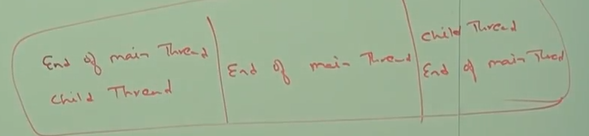 End of main Thread
child Thread
End of main Thread
child Thread
End of main Thred